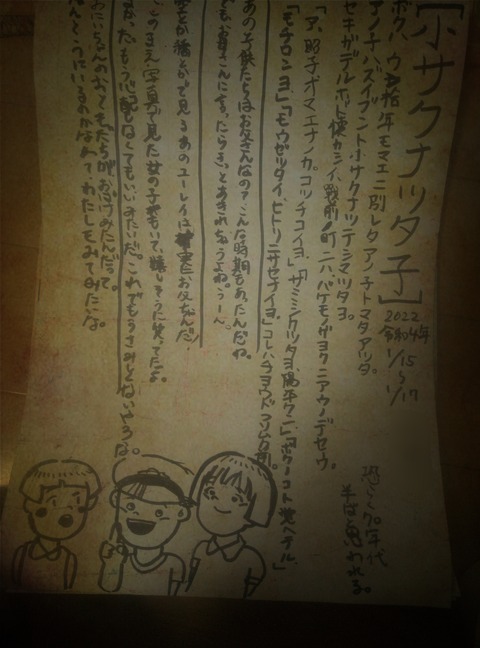 [小サクナツタ子]
2022
令和4年
1/15
〜
1/17
恐らく70年代
半ばと思われる。
ボク、ウン拾年モマエニ別レタアノ子トマタアツタ。
アノ子ハズイブント小サクナツテシマツタヨ。
セキガデルホド懐カシイ、戦前ノ町ニハ、バケモノガヨクニアウノデセウ。
「ア、昭子オマエナノカ。コツチコイヨ」「サミシクツタヨ、陽平クン」「ボクノコト覚ヘテル」
「モチロンヨ」「モウゼツタイ、ヒトリニサセナイヨ」コレハチヨウドフリムク前。
あの子供たちはお父さんなの?こんな時期もあったんだね。
でも、お母さんに言ったらきっとあきれちゃうよね。うーん。
で見るあのユーレイは確実にお父ちゃんだ!
このまえ、写真で見た女の子もいて、嬉しそうに笑ってたよ。
もう心配しなくてもいいみたいだ。これでもうさみしくないやろな。
おにいちゃんのおともだちがおばけみたんだって。
にいるのかなあ。わたしもみてみたいな。